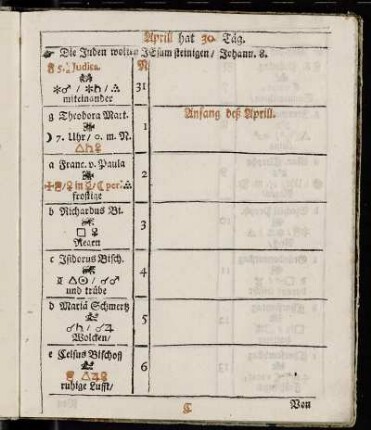 Aprill hat 30. Täg.
Die Juden wollen JEsum steinigen/ Johann. 8.
Judica. N
✶♂ / ✶♄ / ∴ 31
miteinander
g Theodora Mart. Anfang deß Aprill.
1
☽ 7. Uhr/ 0. m. N.
△♄☿
a Franc. v. Paula
2
frostige
b Richardus Bi.
3
□ ♀
Regen
c Isidorus Bisch.
4
△☉ / ☌♂
und trübe
d Mariä Schmertz
5
☌♄ / ☌♃
Wolcken/
e Celsus Bischoff
6
△♃
ruhige Lufft/
C Von